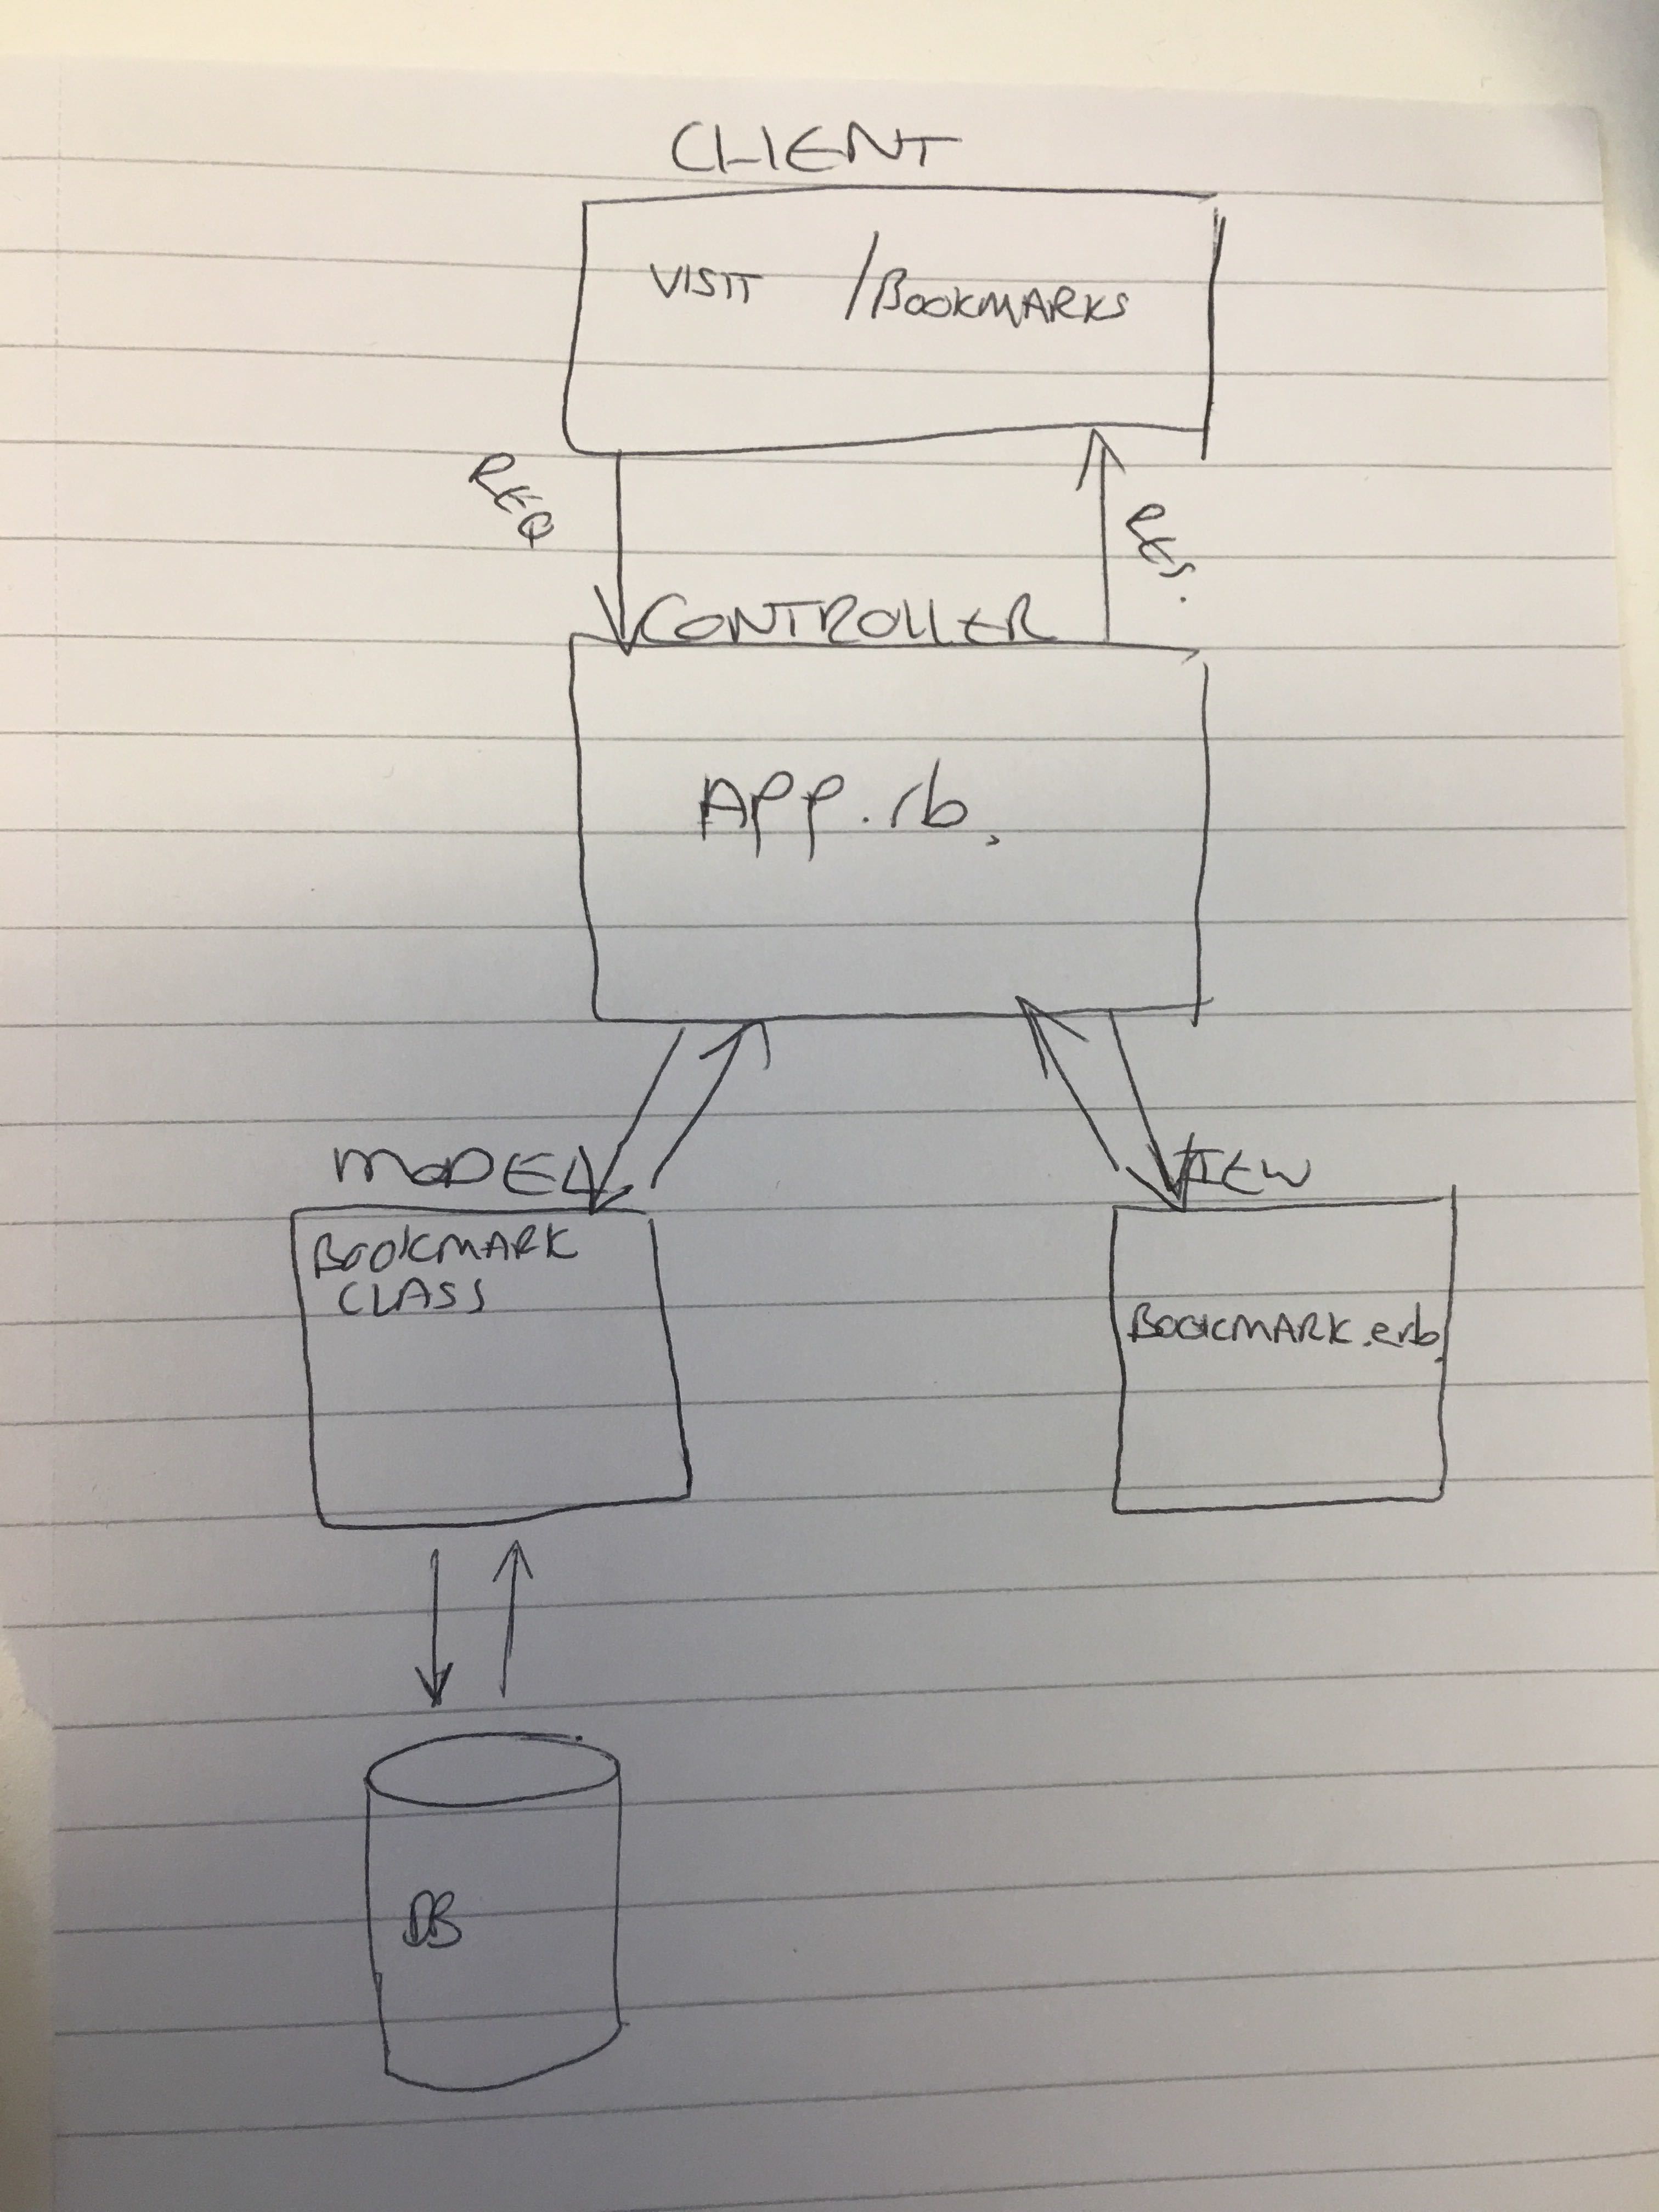 CLIENT
VISIT /BOOKMARKS
REQ
RES.
CONTROLLER
APP.rb.
MODEL
VIEW
BOOKMARK
CLASS
BOOKMARK.erb.
DB